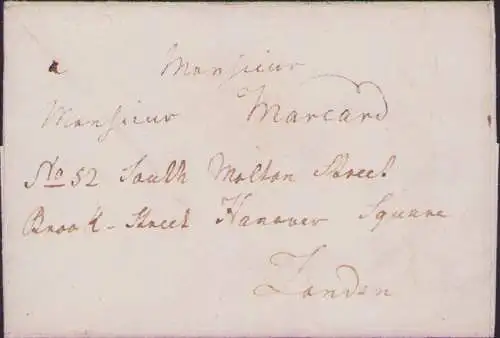 a Monsieur
Monsieur Marcard
No 52 South Molton Street
Brook-Street Hanover Square
London